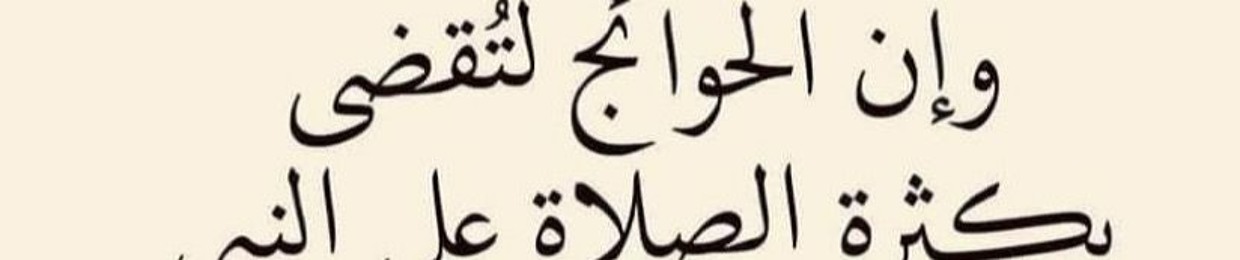 وإن الحوائج لتُقضى
بكثرة الصلاة على النبي